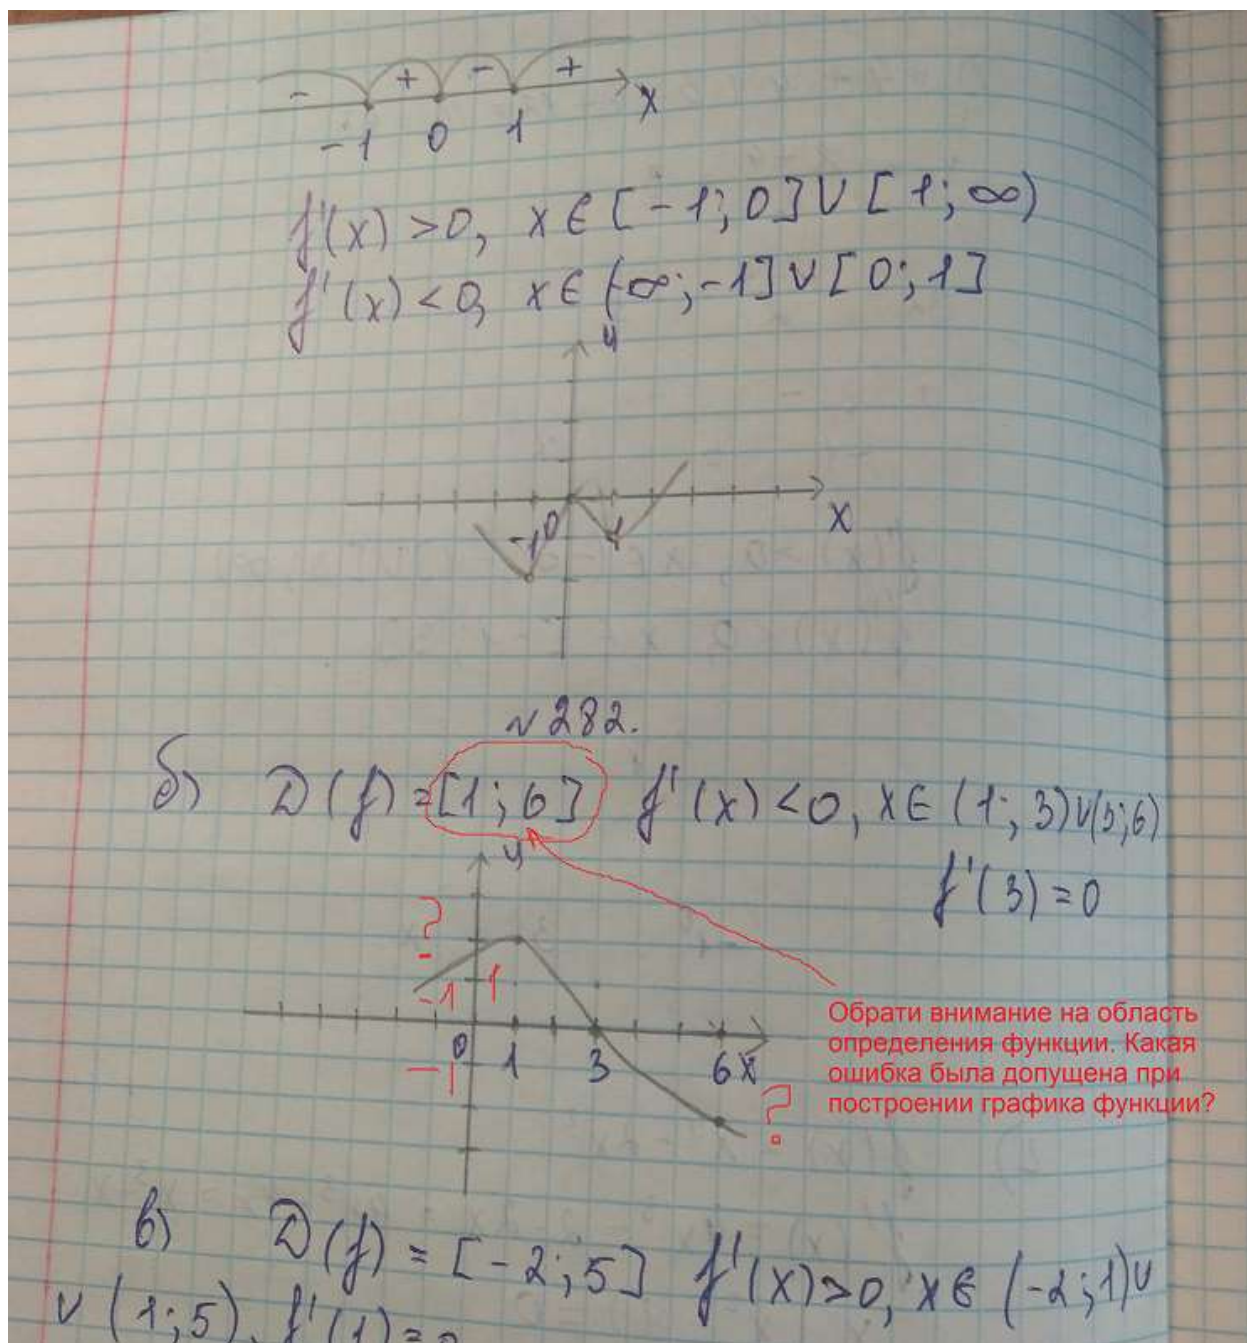 - + - + x
-1 0 1
f'(x) >0, x ∈ [-1; 0] ∪ [1; ∞)
f'(x) <0, x ∈ (-∞; -1] ∪ [0; 1]
y
-1 0 1 x
№282.
б) D(f) = [1; 6] f'(x) <0, x ∈ (1; 3) ∪ (5; 6)
f'(3) = 0
y
?
-1 1
0 1 3 6 x
-1
?
Обрати внимание на область
определения функции. Какая
ошибка была допущена при
построении графика функции?
в) D(f) = [-2; 5] f'(x) >0, x ∈ (-2; 1) ∪
∪ (1; 5), f'(1) = 0